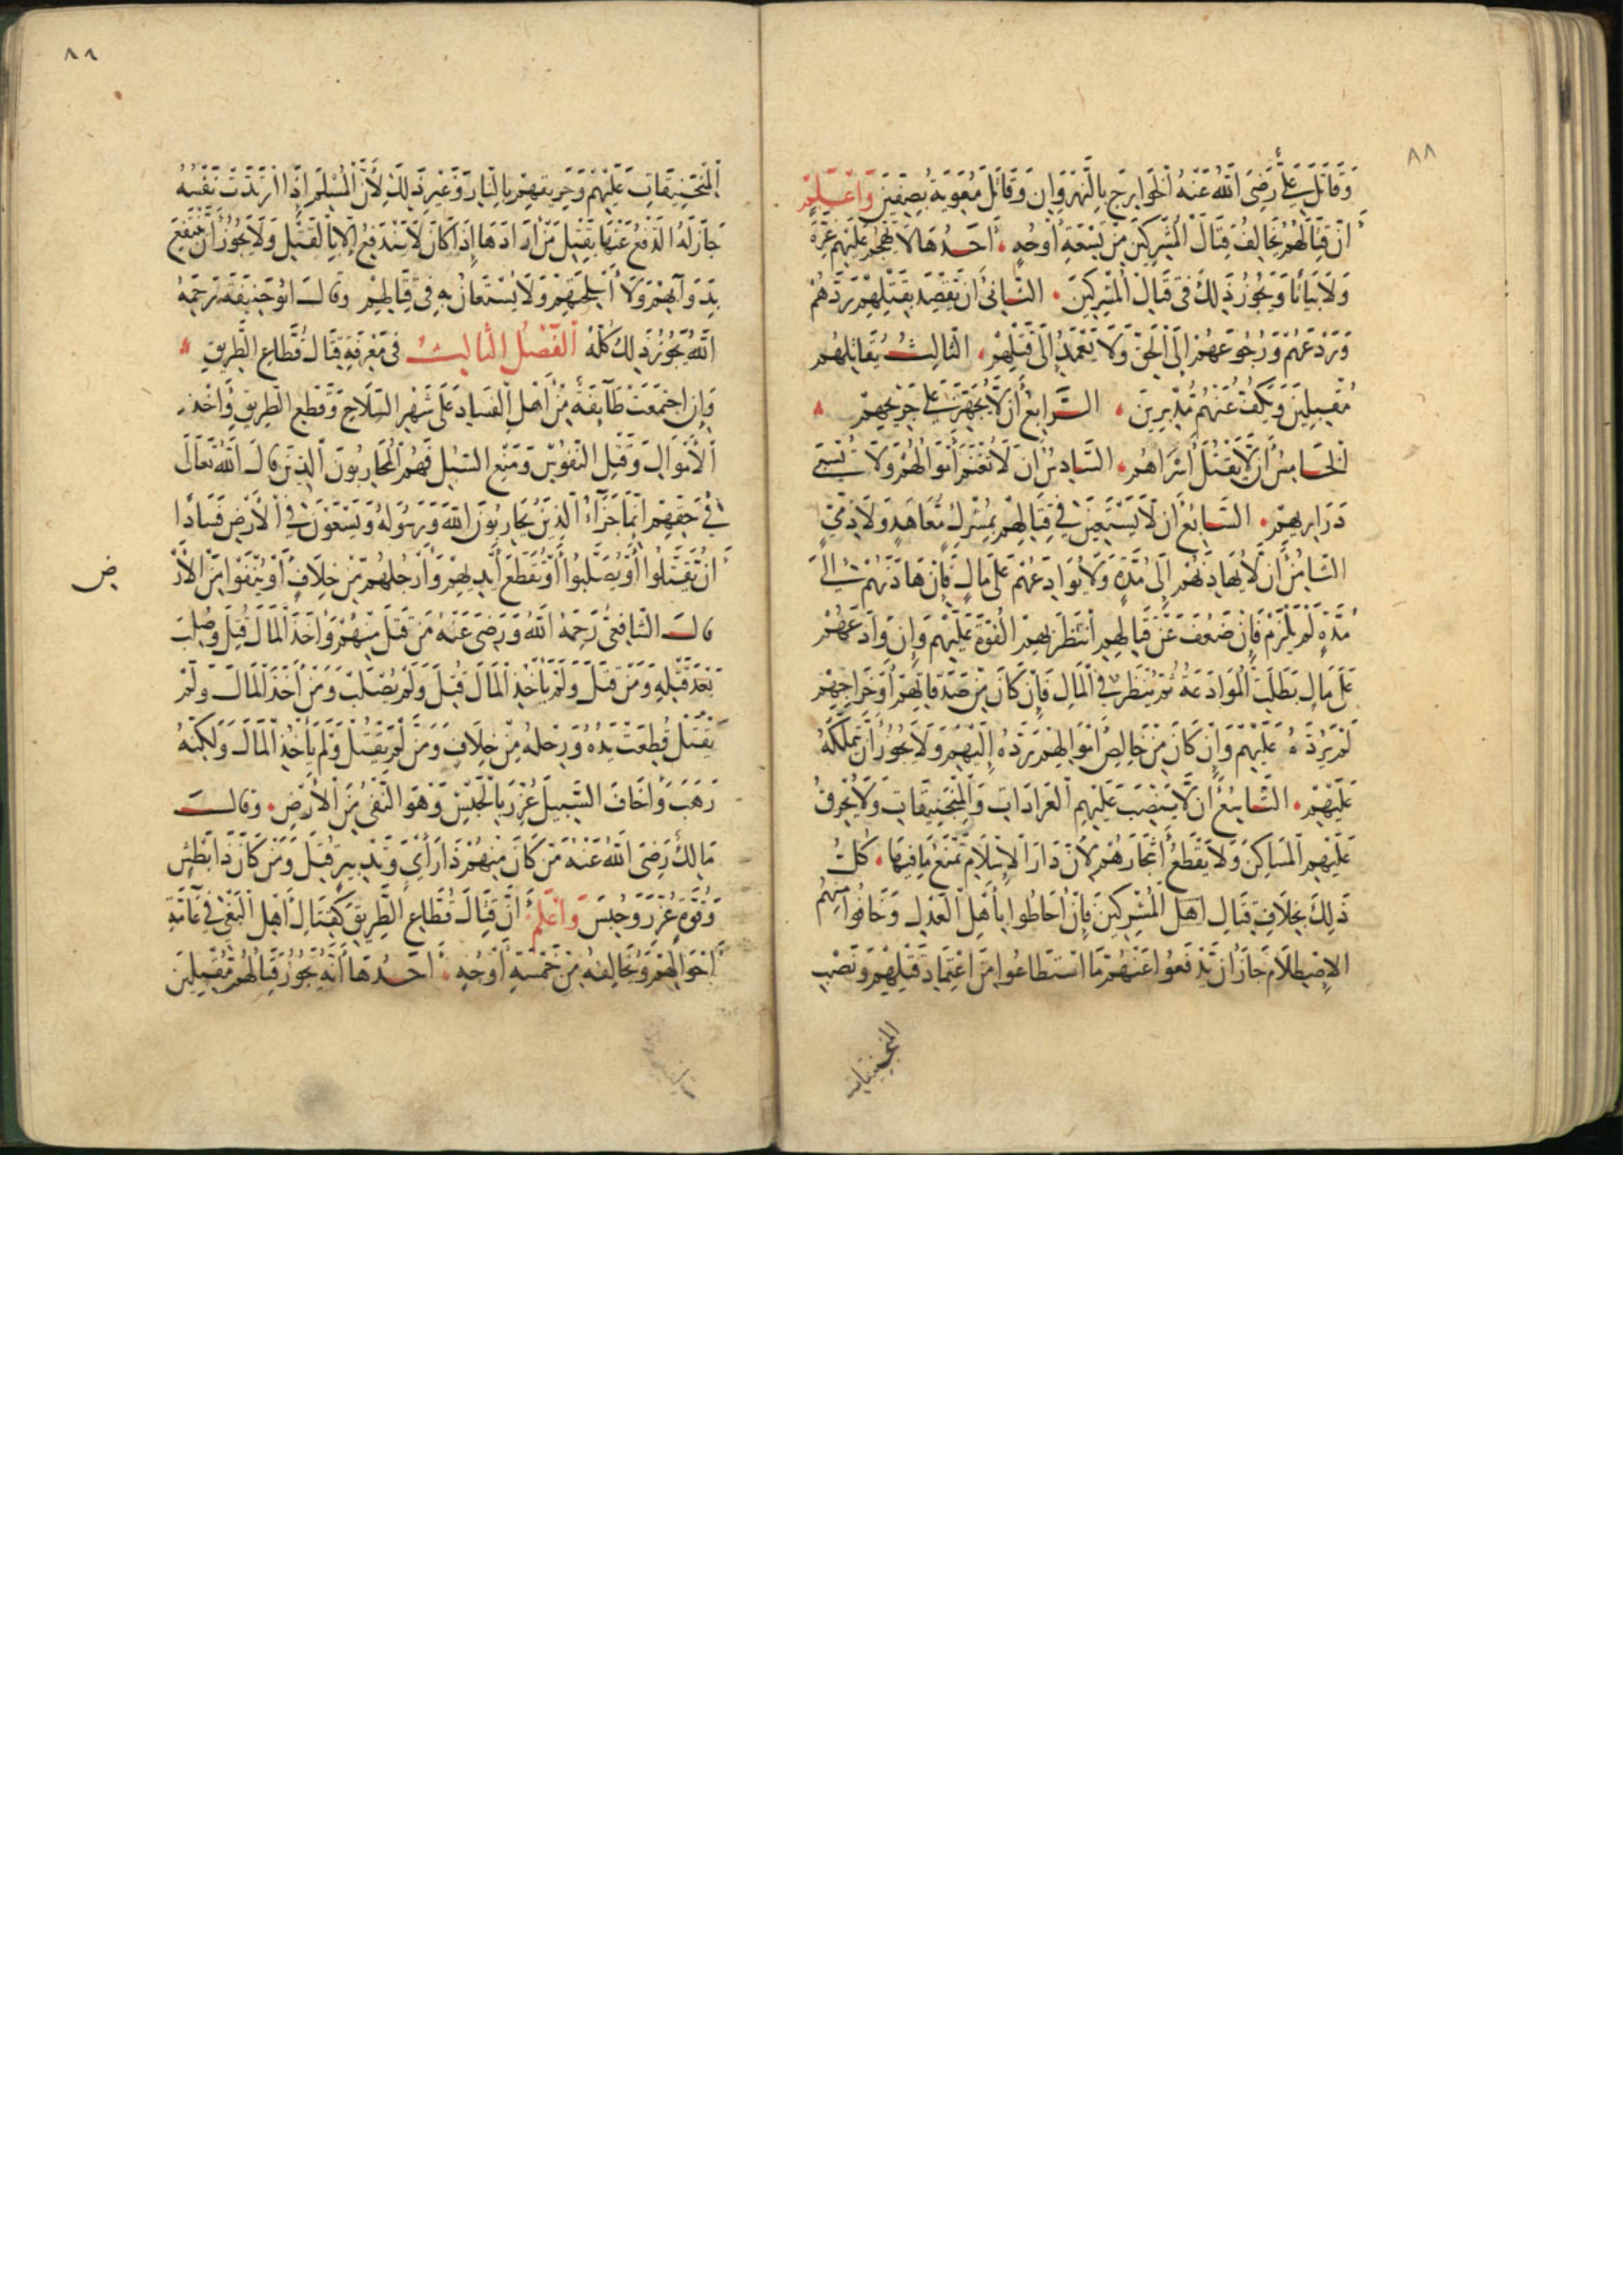 ٨٨
وَقَاتَلَ عَلِيٌّ رَضِيَ اللهُ عَنْهُ الْخَوَارِجَ بِالنَّهْرَوَانِ وَقَاتَلَ مُعَوِيَةَ بِصِفِّينَ وَاعْلَمْ
أَنَّ قِتَالَهُمْ يُخَالِفُ قِتَالَ الْمُشْرِكِينَ مِنْ تِسْعَةِ أَوْجُهٍ أَحَدُهَا لَا يُهْجَمُ عَلَيْهِمْ غِرَّةً
وَلَا بَيَاتًا وَيَجُوزُ ذَلِكَ فِي قِتَالِ الْمُشْرِكِينَ الثَّانِي أَنْ يَقْصِدَ بِقَتْلِهِمْ رَدَّهُمْ
وَرَدْعَهُمْ وَرُجُوعَهُمْ إِلَى الْحَقِّ وَلَا يَعْمَدُ إِلَى قَتْلِهِمْ الثَّالِثُ يُقَاتِلُهُمْ
مُقْبِلِينَ وَيَكُفُّ عَنْهُمْ مُدْبِرِينَ الرَّابِعُ أَنْ لَا يُجْهِزَ عَلَى جَرِيحِهِمْ
الْخَامِسُ أَنْ لَا يَقْتُلَ أَسْرَاهُمْ السَّادِسُ أَنْ لَا تُغْنَمَ أَمْوَالُهُمْ وَلَا تُسْبَى
ذَرَارِيهِمْ السَّابِعُ أَنْ لَا يَسْتَعِينَ فِي قِتَالِهِمْ بِمُشْرِكٍ مُعَاهَدٍ وَلَا ذِمِّيٍّ
الثَّامِنُ أَنْ لَا يُهَادِنَهُمْ إِلَى مُدَّةٍ وَلَا يُوَادِعَهُمْ عَلَى مَالٍ فَإِنْ هَادَنَهُمْ إِلَى
مُدَّةٍ لَمْ يَلْزَمْ فَإِنْ ضَعُفَ عَنْ قِتَالِهِمْ انْتَظَرَ بِهِمُ الْقُوَّةَ عَلَيْهِمْ وَإِنْ وَادَعَهُمْ
عَلَى مَالٍ بَطَلَتْ الْمُوَادَعَةُ ثُمَّ يُنْظَرُ فِي الْمَالِ فَإِنْ كَانَ مِنْ صَدَقَاتِهِمْ أَوْ خَرَاجِهِمْ
لَمْ يَرُدَّهُ عَلَيْهِمْ وَإِنْ كَانَ مِنْ خَالِصِ أَمْوَالِهِمْ رَدَّهُ إِلَيْهِمْ وَلَا يَجُوزُ أَنْ يَمْلِكَهُ
عَلَيْهِمْ التَّاسِعُ أَنْ لَا يَنْصِبَ عَلَيْهِمُ الْعَرَّادَاتِ وَالْمَنْجَنِيقَاتِ وَلَا يُحْرِقُ
عَلَيْهِمِ الْمَسَاكِنَ وَلَا يَقْطَعُ أَشْجَارَهُمْ لِأَنَّ دَارَ الْإِسْلَامِ تَمْنَعُ مَا فِيهَا كُلُّ
ذَلِكَ بِخِلَافِ قِتَالِ أَهْلِ الْمُشْرِكِينَ فَإِنْ أَحَاطُوا بِأَهْلِ الْعَدْلِ وَخَافُوا مِنْهُمُ
الْإِصْطِلَامَ جَازَ أَنْ يَدْفَعُوا عَنْهُمْ مَا اسْتَطَاعُوا مِنِ اعْتِمَادِ قَتْلِهِمْ وَنَصْبِ
المنجنيقات
٨٩
الْمَنْجَنِيقَاتِ عَلَيْهِمْ وَحَرِيقِهِمْ بِالنَّارِ وَغَيْرِ ذَلِكَ لِأَنَّ الْمُسْلِمَ إِذَا ارْتَدَّتْ نَفْسُهُ
جَازَ لَهُ الدَّفْعُ عَنْهَا بِقَتْلِ مَنْ أَرَادَهَا إِذَا كَانَ لَا يَنْدَفِعُ إِلَّا بِالْقَتْلِ وَلَا يَجُوزُ أَنْ يَنْتَفِعَ
بِدَوَابِّهِمْ وَلَا أَسْلِحَتِهِمْ وَلَا يُسْتَعَانُ بِهِ فِي قِتَالِهِمْ وَقَالَ ابُو حَنِيفَةَ رَحِمَهُ
اللَّهُ يَجُوزُ ذَلِكَ كُلُّهُ الْفَصْلُ الثَّالِثُ فِي مَعْرِفَةِ قِتَالِ قُطَّاعِ الطَّرِيقِ
وَإِنِ اجْتَمَعَتْ طَائِفَةٌ مِنْ أَهْلِ الْفَسَادِ عَلَى شَهْرِ السِّلَاحِ وَقَطْعِ الطَّرِيقِ وَأَخْذِ
الْأَمْوَالِ وَقَتْلِ النُّفُوسِ وَمَنْعِ السُّبُلِ فَهُمُ الْمُحَارِبُونَ الَّذِينَ قَالَ اللهُ تَعَالَى
فِي حَقِّهِمْ إِنَّمَا جَزَاءُ الَّذِينَ يُحَارِبُونَ اللَّهَ وَرَسُولَهُ وَيَسْعَوْنَ فِي الْأَرْضِ فَسَادًا
أَنْ يُقَتَّلُوا أَوْ يُصَلَّبُوا أَوْ تُقَطَّعَ أَيْدِيهِمْ وَأَرْجُلُهُمْ مِنْ خِلَافٍ أَوْ يُنْفَوْا مِنَ الْأَرْ
ض
قَالَ الشَّافِعِيُّ رَحِمَهُ اللهُ وَرَضِيَ عَنْهُ مَنْ قَتَلَ مِنْهُمْ وَأَخَذَ الْمَالَ قُتِلَ وَصُلِبَ
بَعْدَ قَتْلِهِ وَمَنْ قَتَلَ وَلَمْ يَأْخُذِ الْمَالَ قُتِلَ وَلَمْ يُصْلَبْ وَمَنْ أَخَذَ الْمَالَ وَلَمْ
يَقْتُلْ قُطِعَتْ يَدُهُ وَرِجْلُهُ مِنْ خِلَافٍ وَمَنْ لَمْ يَقْتُلْ وَلَمْ يَأْخُذِ الْمَالَ وَلَكِنَّهُ
رَهَبَ وَأَخَافَ السَّبِيلَ عُزِّرَ بِالْحَبْسِ وَهُوَ النَّفْيُ مِنَ الْأَرْضِ وَقَالَ
مَالِكٌ رَضِيَ اللهُ عَنْهُ مَنْ كَانَ مِنْهُمْ ذَا رَأْيٍ وَتَدْبِيرٍ قُتِلَ وَمَنْ كَانَ ذَا بَطْشٍ
وَقُوَّةٍ عُزِّرَ وَحُبِسَ وَاعْلَمْ أَنَّ قِتَالَ قُطَّاعِ الطَّرِيقِ كَقِتَالِ أَهْلِ الْبَغْيِ فِي عَامَّةِ
أَحْوَالِهِمْ وَيُخَالِفُهُ مِنْ خَمْسَةِ أَوْجُهٍ أَحَدُهَا أَنَّهُ يَجُوزُ قِتَالُهُمْ مُقْبِلِينَ